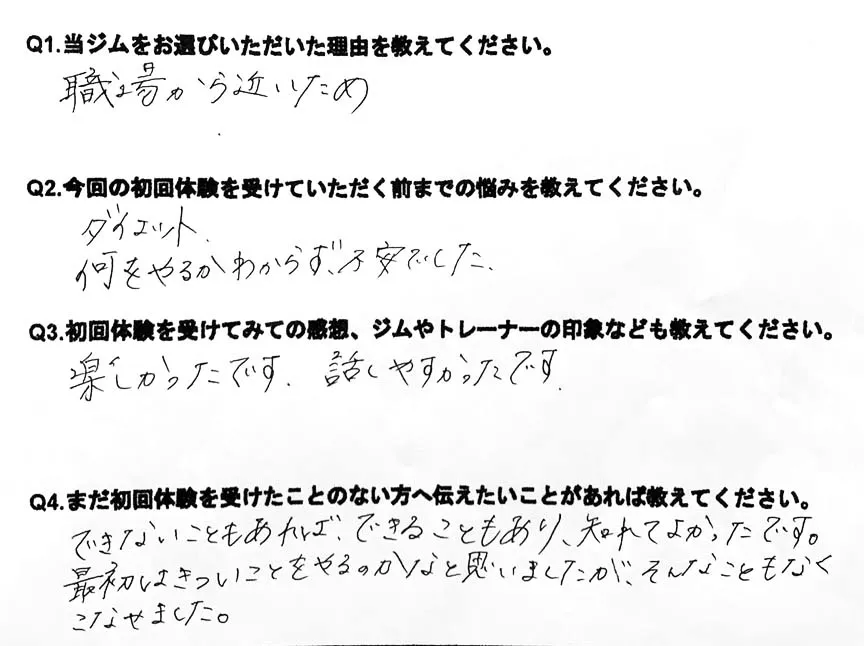 Q1.当ジムをお選びいただいた理由を教えてください。
職場から近いため
Q2.今回の初回体験を受けていただく前までの悩みを教えてください。
ダイエット.
何をやるかわからず、不安でした、
Q3.初回体験を受けてみての感想、ジムやトレーナーの印象なども教えてください。
楽しかったです. 話しやすかったです.
Q4.まだ初回体験を受けたことのない方へ伝えたいことがあれば教えてください。
できないこともあれば、できることもあり、知れてよかったです。
最初はきついことをやるのかなと思いましたが、そんなこともなく
こなせました。